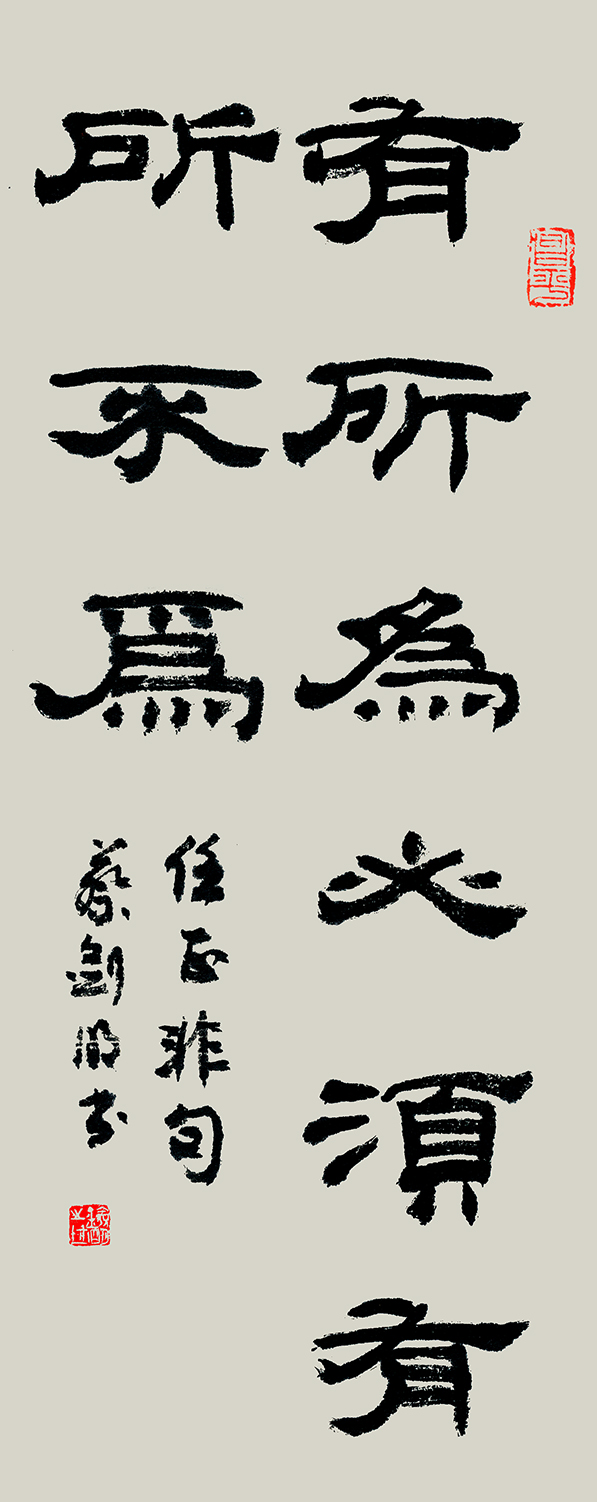 有所為必須有
所不爲
任正非句
蔡劍明书